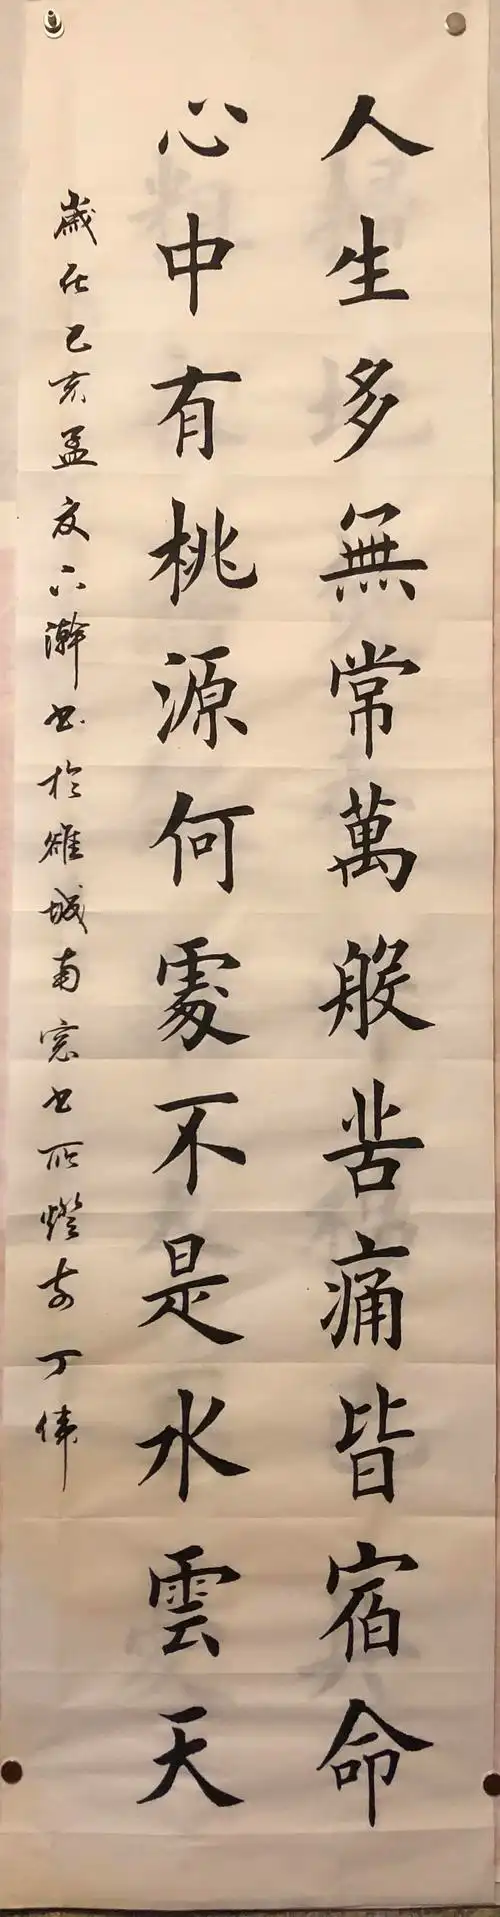 人生多無常萬般苦痛皆宿命
心中有桃源何處不是水雲天
歲在己亥孟夏六瀚书於雄城南窓书所燈前丁伟